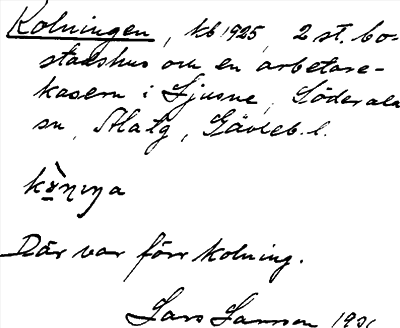 Kolningen, kb 1925, 2 st. bo-
stadshus om en arbetare-
kasern i Ljusne, Söderala
sn, Alalg, Gävleb. l.
Där var förr kolning.
Lars Larsson